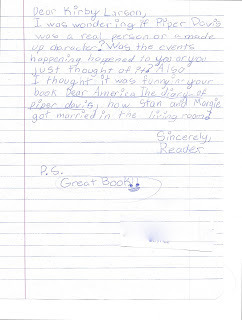 Dear Kirby Larson,
I was wondering if Piper Davis
was a real person or a made
up character? Was the events
happening happened to you or you
just thought of it? Also
I thought it was funny in your
book Dear America The diary of
piper davis, how Stan and Margie
got married in the living room!
Sincerely,
Reader
P.S.
Great Book!